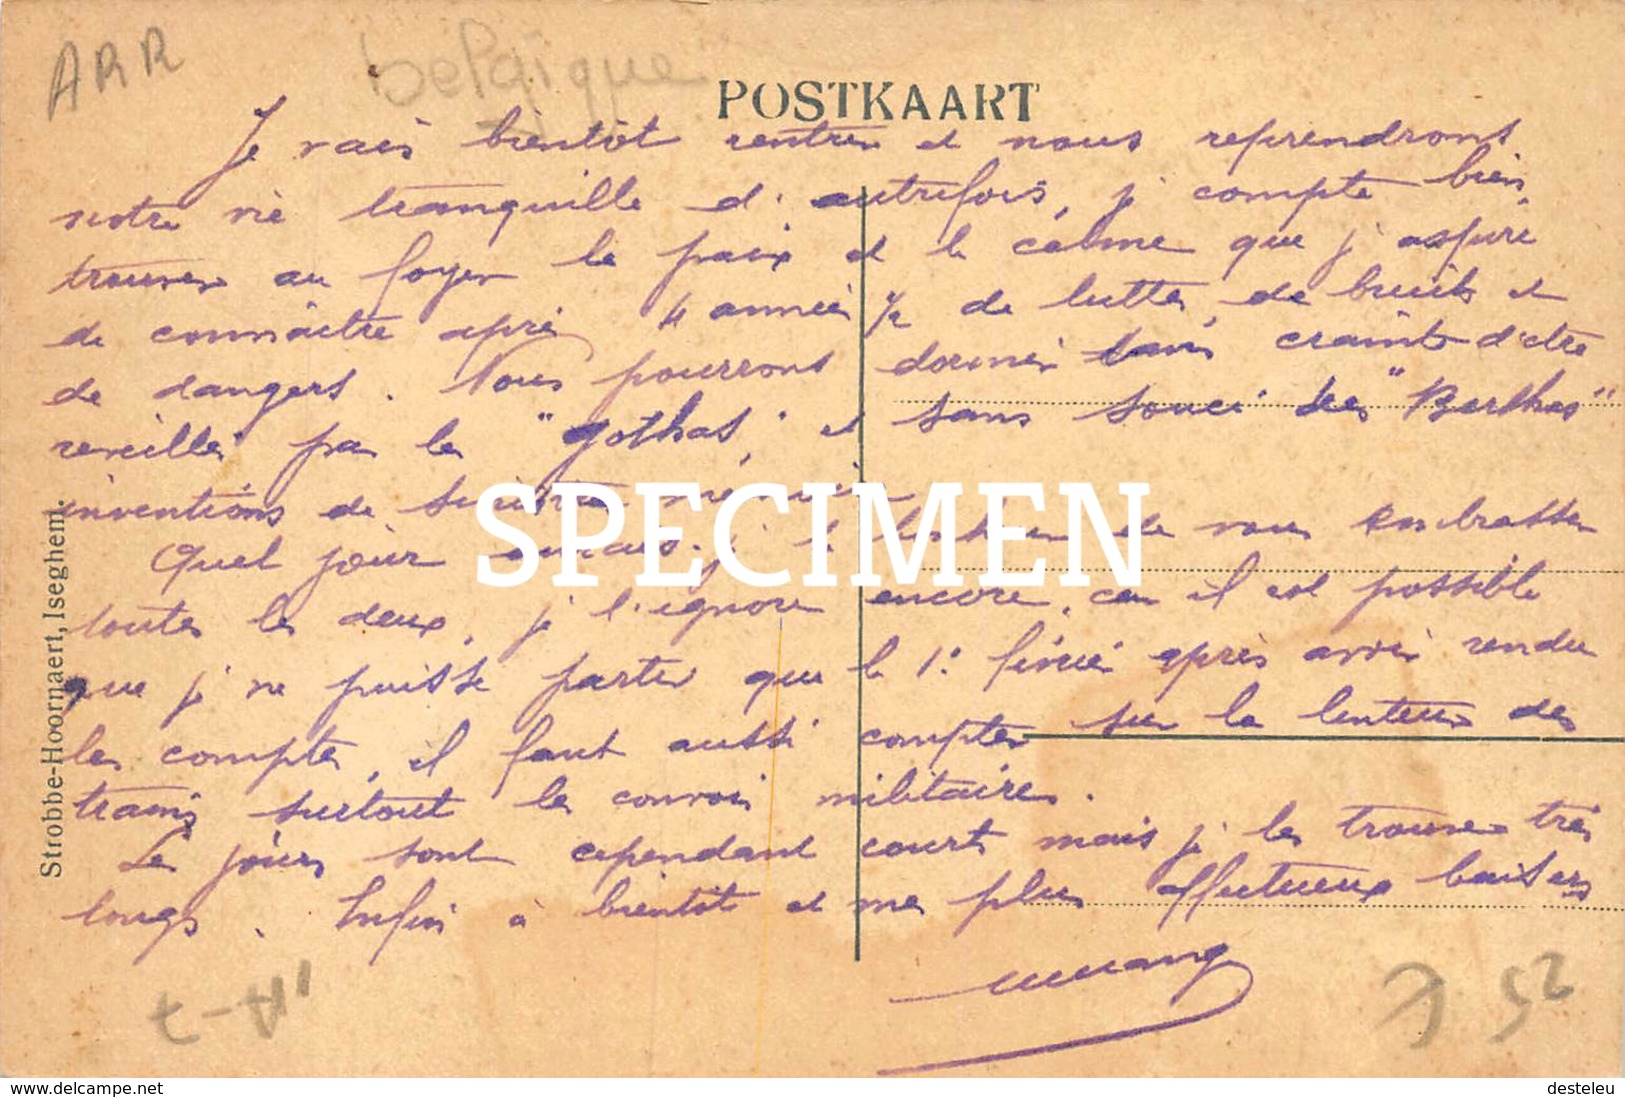 ARR
Belgique
POSTKAART
Je vais bientôt rentrer et nous reprendrons
notre vie tranquille d'autrefois, je compte bien
trouver au foyer la paix et le calme que j'aspire
de connaître après 4 années 1/2 de lutte, de bruits et
de dangers. Nous pourrons dormir sans crainte d'être
réveillés par les "gothas", et sans souci des "Berthas"
inventions de sinistre mémoire
Quel jour aurais-je le bonheur de vous embrasser
toutes les deux, je l'ignore encore, car il est possible
que je ne puisse partir que le 1er février après avoir rendu
les comptes, il faut aussi compter sur la lenteur des
trains surtout les convois militaires.
Les jours sont cependant courts mais je les trouve très
longs. Enfin à bientôt et mes plus affectueux baisers
Strobbe-Hoornaert, Iseghem.
SPECIMEN
www.delcampe.net
desteleu